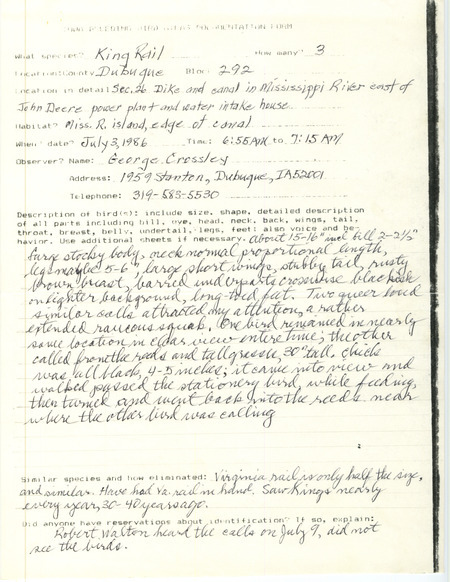 IOWA BREEDING BIRD ATLAS DOCUMENTATION FORM
What species? King Rail How many? 3
Location: County Dubuque Bloc: 292
Location in detail Sec. 26 Dike and canal in Mississippi River east of
John Deere power plant and water intake house.
Habitat? Miss. R. island, edge of canal
When? date July 3, 1986 Time: 6:55AM to 7:15AM
Observer? Name: George Crossley
Address: 1959 Stanton, Dubuque, IA 52001
Telephone: 319-583-5530
Description of bird(s): include size, shape, detailed description
of all parts including bill, eye, head, neck, back, wings, tail,
throat, breast, belly, undertail, legs, feet; also voice and be-
havior. Use additional sheets if necessary. About 15-16" incl bill 2-2½"
large stocky body, neck normal proportional length,
legs maybe 5-6", large short wings, stubby tail, rusty
brown breast, barried underparts crosswise blackish
on lighter background, long-toed feet. Two queer loud
similar calls attracted my attention, a rather
extended raucous squak. One bird remained in nearly
same location in clear view entire time; the other
called from the reeds and tall grasses, 30" tall. chick
was all black, 4-5 inches; it came into view and
walked passed the stationery bird, while feeding,
then turned and went back into the reeds near
where the other bird was calling
Similar species and how eliminated: Virginia rail is only half the size,
and similar. Have had Va. rail in hand. Saw Kings nearly
every year, 30-40 years ago.
Did anyone have reservations about identification? If so, explain:
Robert Walton heard the calls on July 9, did not
see the birds.